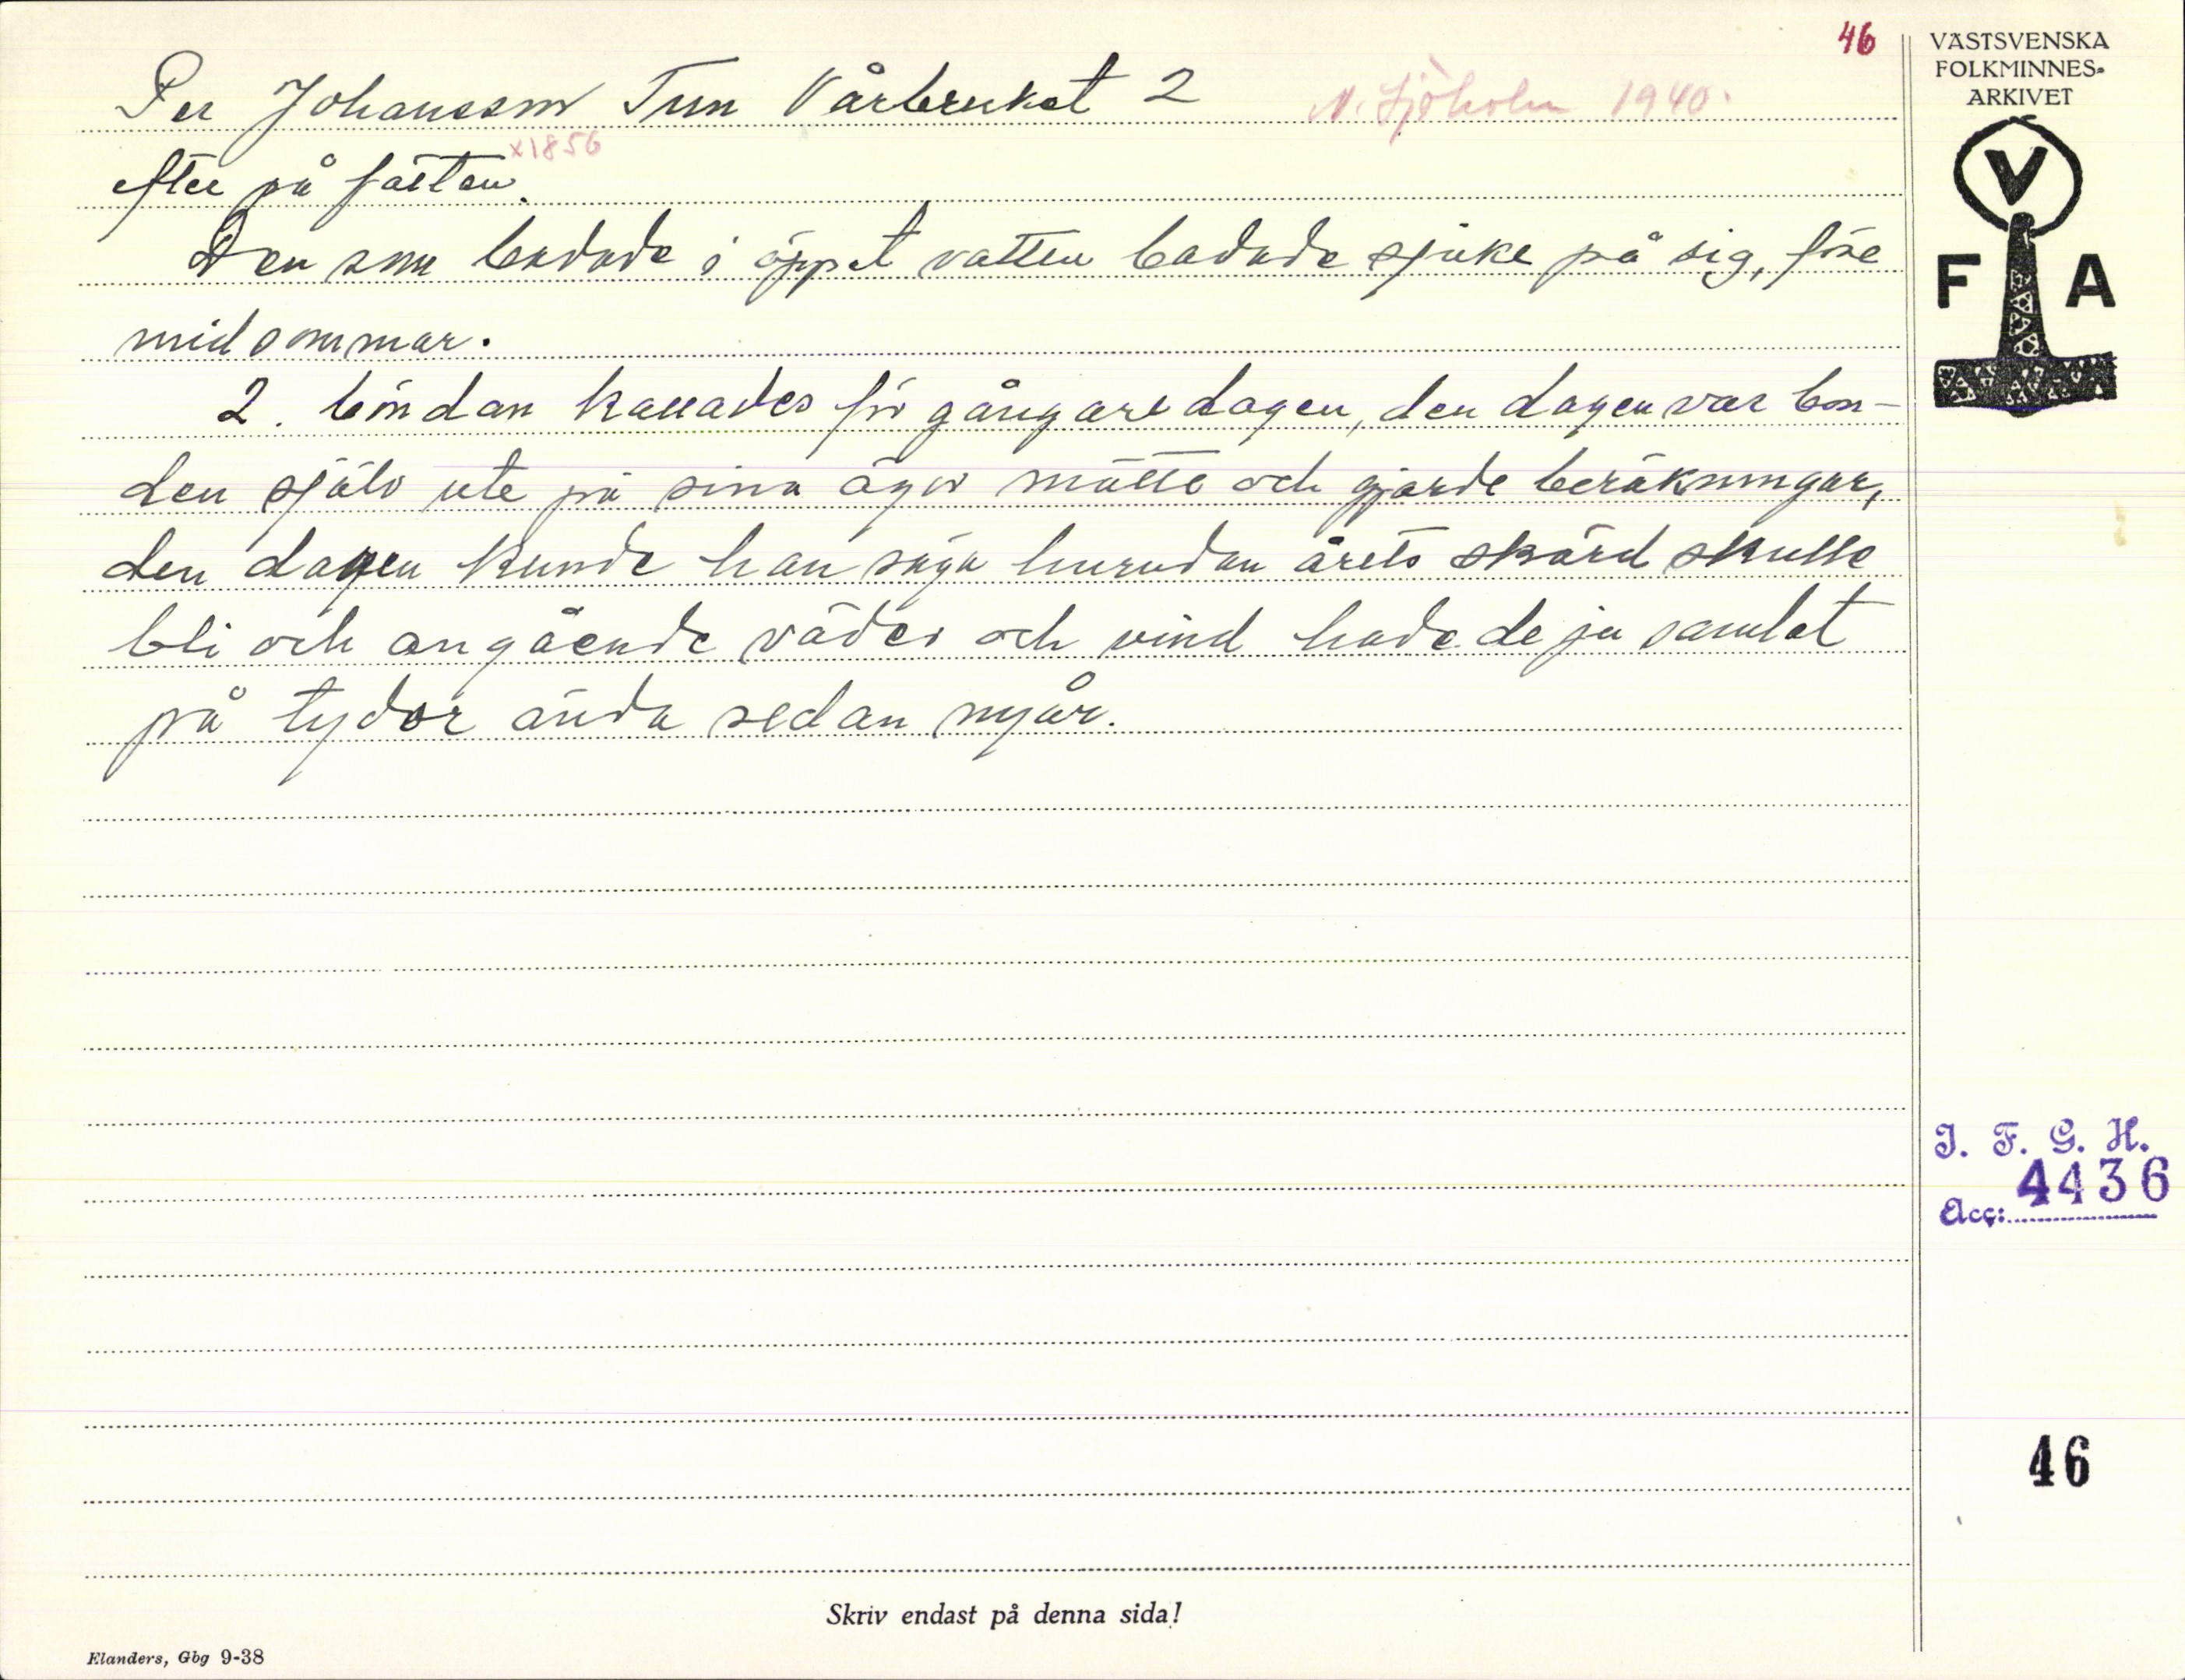 46
Per Johansson Tun Vårbruket 2 N. Sjöholm 1940.
x1856
efter på fälten.
Den som badade i öppet vatten badade sjuke på sig, före
midsommar.
2. böndan kallades för gångaredagen, den dagen var bon-
den själv ute på sina ägor mätte och gjorde beräkningar,
den dagen kunde han säga hurudan årets skörd skulle
bli och angående väder och vind hade de ju samlat
på tydor ända sedan nyår.
VÄSTSVENSKA
FOLKMINNES-
ARKIVET
V
F A
I. F. G. H.
Acc: 4436
46
Skriv endast på denna sida!
Elanders, Gbg 9-38